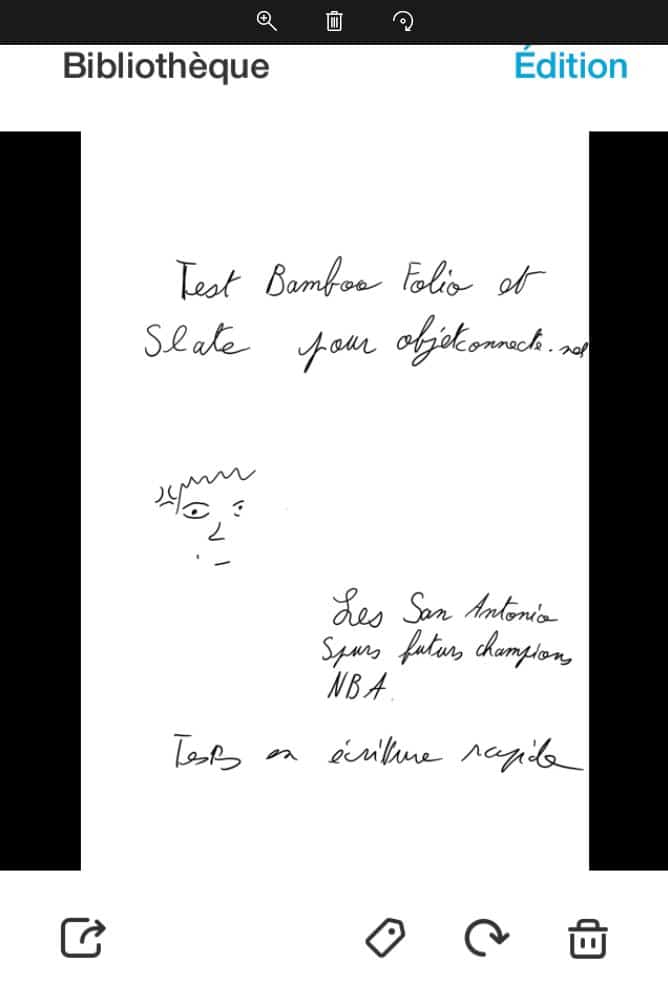 Bibliothèque Édition
Test Bamboo Folio et
Slate pour objetconnecte.net
Les San Antonio
Spurs futurs champions
NBA.
Tests en écriture rapide